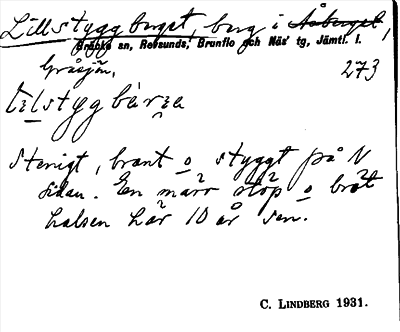 Lillstyggberget, berg i Åsberget,
Bräcke sn, Refsunds, Brunflo och Näs' tg, Jämtl. l.
Gråsjön, 273
stenigt, brant o styggt på N
sidan. En märr stöp o bröt
halsen här 10 år sen.
C. LINDBERG 1931.